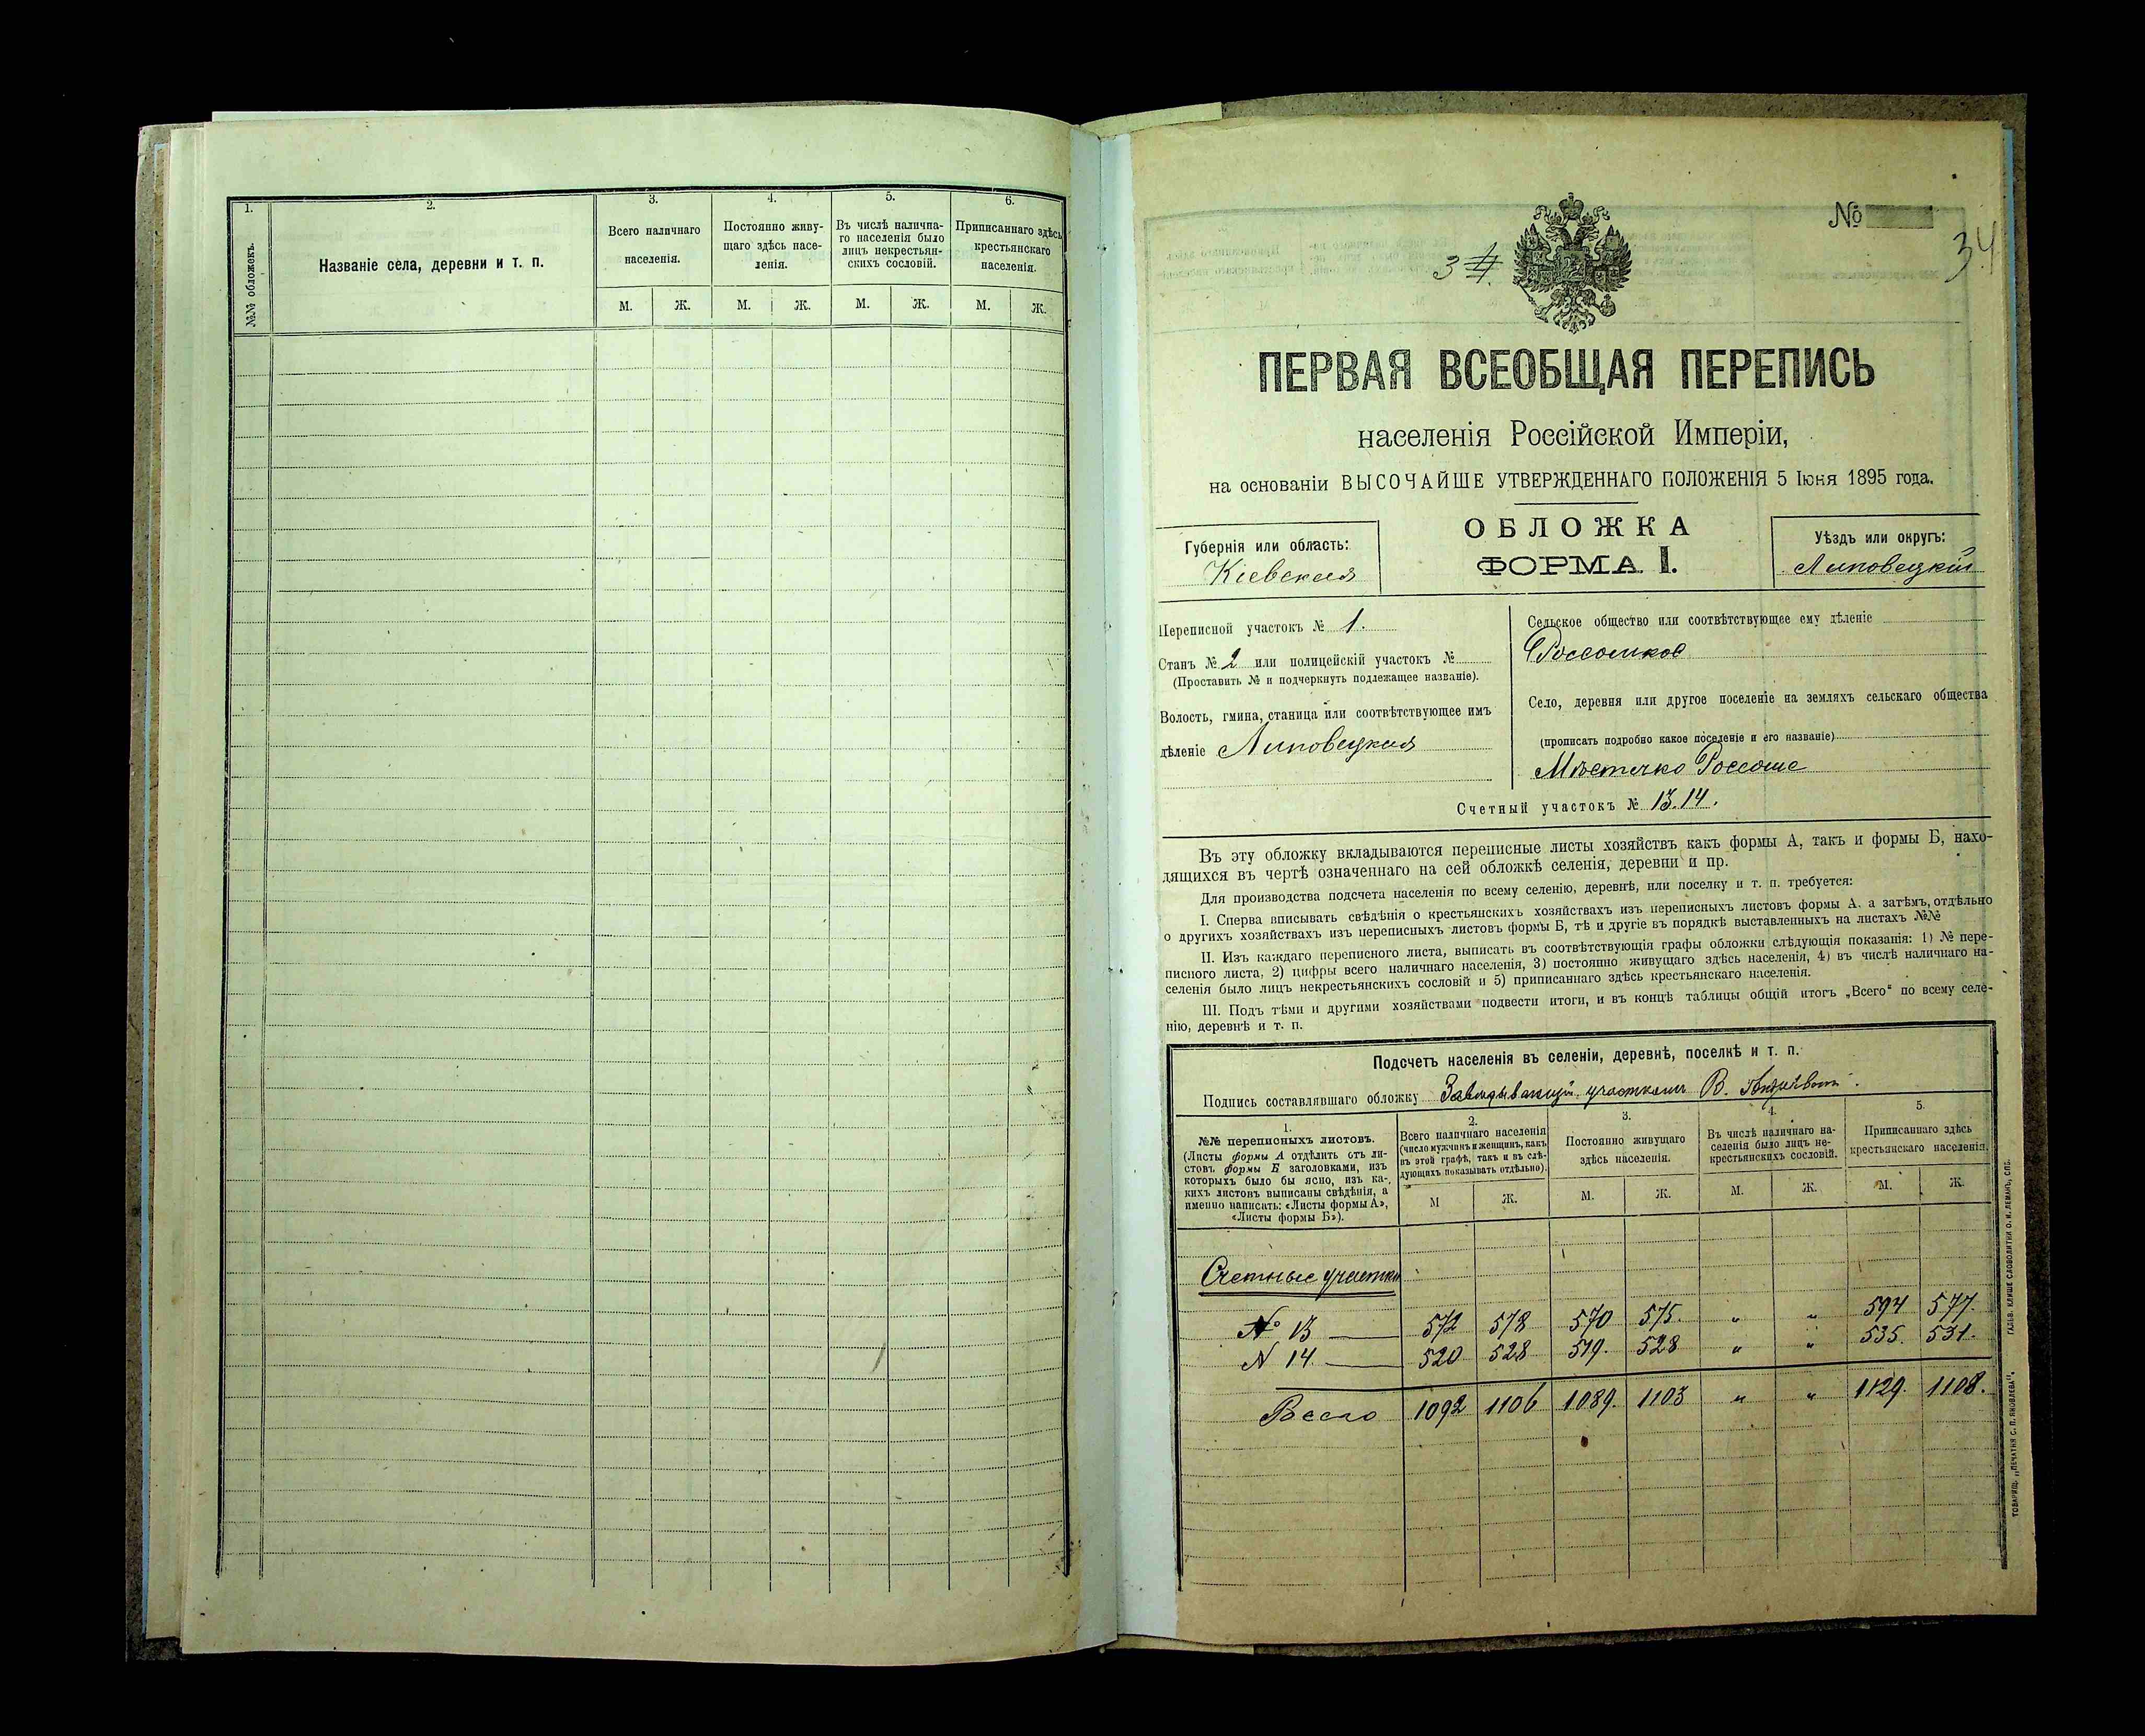 1.
2.
3.
4.
5.
6.
№№ обложекъ.
Названіе села, деревни и т. п.
Всего наличнаго
населенія.
Постоянно живу-
щаго здѣсь насе-
ленія.
Въ числѣ налична-
го населенія было
лицъ некрестьян-
скихъ сословій.
Приписаннаго здѣсь
крестьянскаго
населенія.
М. Ж. М. Ж. М. Ж. М. Ж.
№
34
3 4.
ПЕРВАЯ ВСЕОБЩАЯ ПЕРЕПИСЬ
населенія Россійской Имперіи,
на основаніи ВЫСОЧАЙШЕ УТВЕРЖДЕННАГО ПОЛОЖЕНІЯ 5 Іюня 1895 года.
ОБЛОЖКА
ФОРМА I.
Губернія или область:
Кіевская
Уѣздъ или округъ:
Липовецкій
Переписной участокъ № 1.
Станъ № 2 или полицейскій участокъ №
(Проставить № и подчеркнуть подлежащее названіе).
Волость, гмина, станица или соотвѣтствующее имъ
дѣленіе Липовецкая
Сельское общество или соотвѣтствующее ему дѣленіе
Россошское
Село, деревня или другое поселеніе на земляхъ сельскаго общества
(прописать подробно какое поселеніе и его названіе)
Мѣстечко Россоше
Счетный участокъ № 13.14.
Въ эту обложку вкладываются переписные листы хозяйствъ какъ формы А, такъ и формы Б, нахо-
дящихся въ чертѣ означеннаго на сей обложкѣ селенія, деревни и пр.
Для производства подсчета населенія по всему селенію, деревнѣ, или поселку и т. п. требуется:
I. Сперва вписывать свѣдѣнія о крестьянскихъ хозяйствахъ изъ переписныхъ листовъ формы А. а затѣмъ, отдѣльно
о другихъ хозяйствахъ изъ переписныхъ листовъ формы Б, тѣ и другіе въ порядкѣ выставленныхъ на листахъ №№
II. Изъ каждаго переписного листа, выписать въ соотвѣтствующія графы обложки слѣдующія показанія: 1) № пере-
писного листа, 2) цифры всего наличнаго населенія, 3) постоянно живущаго здѣсь населенія, 4) въ числѣ наличнаго на-
селенія было лицъ некрестьянскихъ сословій и 5) приписаннаго здѣсь крестьянскаго населенія.
III. Подъ тѣми и другими хозяйствами подвести итоги, и въ концѣ таблицы общій итогъ „Всего“ по всему селе-
нію, деревнѣ и т. п.
Подсчетъ населенія въ селеніи, деревнѣ, поселкѣ и т. п.
Подпись составлявшаго обложку Завѣдывающій участкомъ В.
1.
№№ переписныхъ листовъ.
(Листы формы А отдѣлить отъ ли-
стовъ формы Б заголовками, изъ
которыхъ было бы ясно, изъ ка-
кихъ листовъ выписаны свѣдѣнія, а
именно написать: «Листы формы А»,
«Листы формы Б»).
2.
Всего наличнаго населенія
(число мужчинъ и женщинъ, какъ
въ этой графѣ, такъ и въ слѣ-
дующихъ показывать отдѣльно).
3.
Постоянно живущаго
здѣсь населенія.
4.
Въ числѣ наличнаго на-
селенія было лицъ не-
крестьянскихъ сословій.
5.
Приписаннаго здѣсь
крестьянскаго населенія.
М Ж. М. Ж. М. Ж. М. Ж.
Счетные участки
№ 13 — 572 578 570 575. „ „ 594 577.
N 14. — 520 528 519. 528 „ „ 535. 531.
Всего 1092 1106 1089. 1103 „ „ 1129. 1108.
ТОВАРИЩ. „ПЕЧАТНЯ С. П. ЯКОВЛЕВА“. ГАЛЬВ. КЛИШЕ СЛОВОЛИТНИ О. И. ЛЕМАНЪ, СПБ.